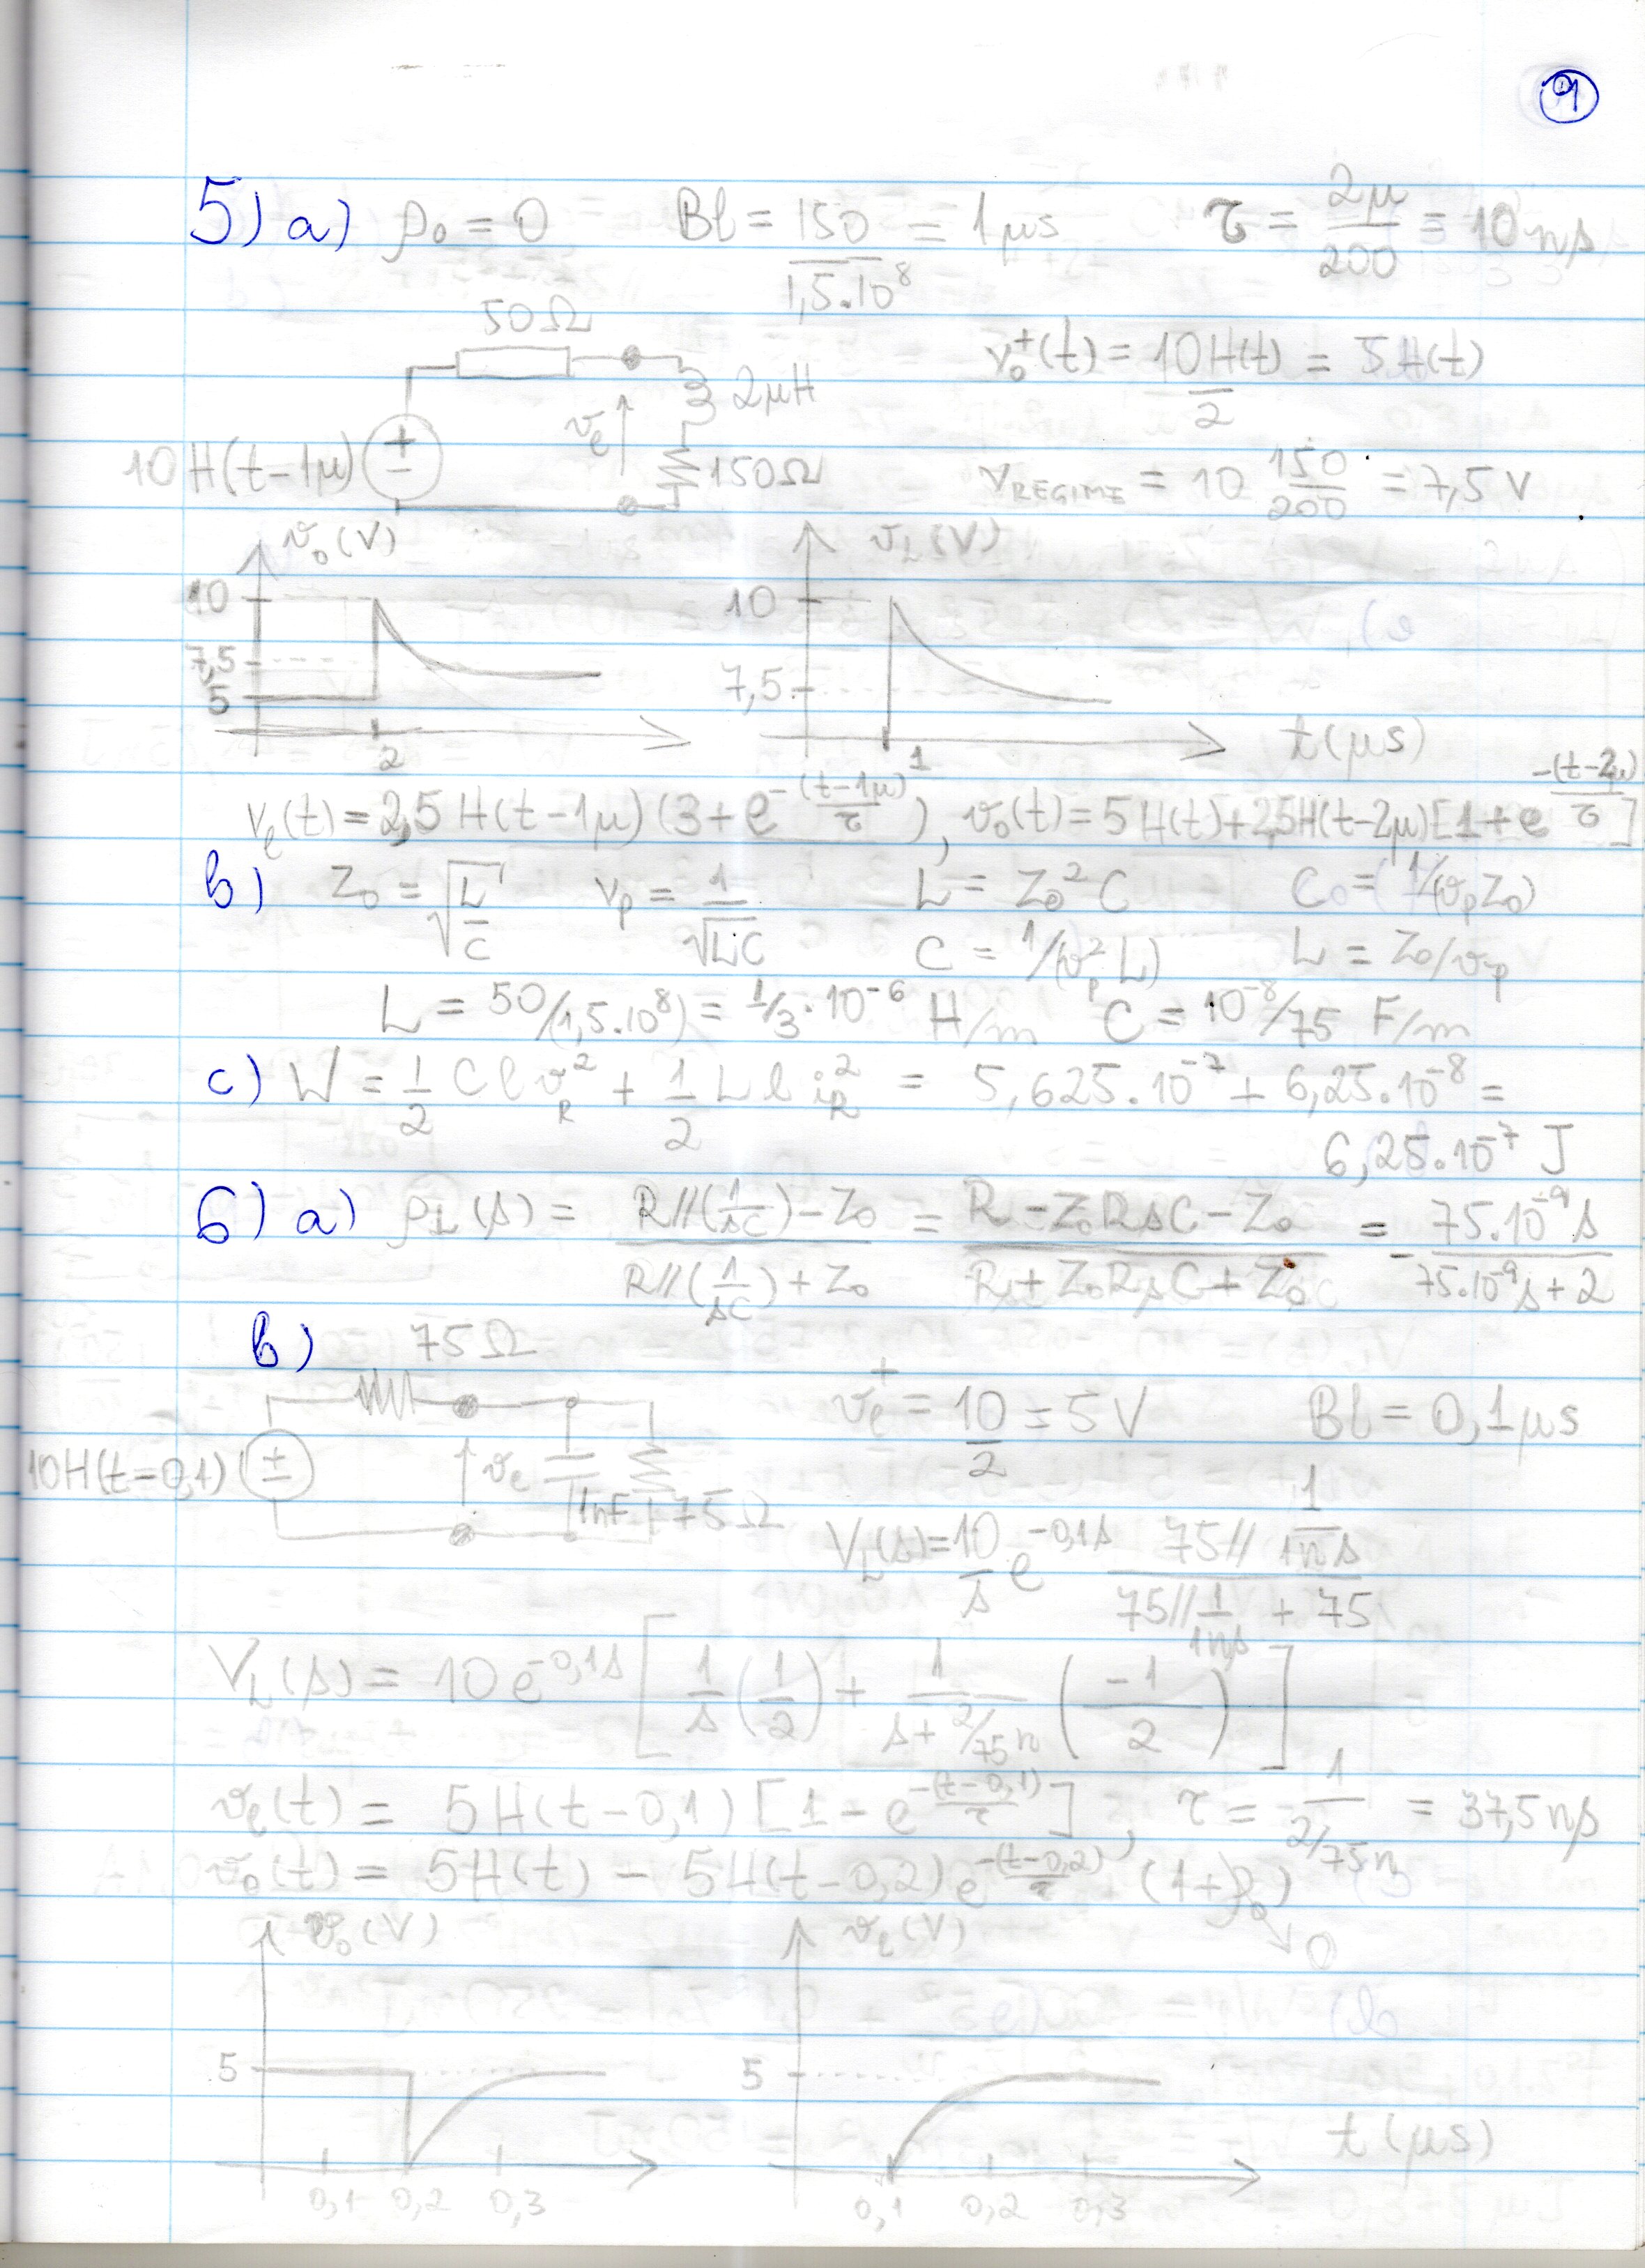 9
5) a) ρ₀ = 0 Bl = 150/1,5.10⁸ = 1μs τ = 2μ/200 = 10 ns
50Ω
v₀⁺(t) = 10H(t)/2 = 5H(t)
2μH
10 H(t-1μ) + - vℓ 150Ω
v_REGIME = 10 150/200 = 7,5 V
v₀(V) v_L(V)
10 10
7,5 7,5
5
2 1 t(μs)
vℓ(t) = 2,5 H(t-1μ) (3+e^-(t-1μ)/τ), v₀(t) = 5H(t)+2,5H(t-2μ)[1+e^-(t-2μ)/τ]
b) Z₀ = √(L/C) vp = 1/√LC L = Z₀²C C₀ = 1/(vpZ₀)
C = 1/(vp²L) L = Z₀/vp
L = 50/(1,5.10⁸) = 1/3.10⁻⁶ H/m C = 10⁻⁸/75 F/m
c) W = 1/2 C l v_R² + 1/2 L l i_R² = 5,625.10⁻⁷ + 6,25.10⁻⁸ =
6,25.10⁻⁷ J
6) a) ρ_L(s) = (R//(1/sC) - Z₀)/(R//(1/sC) + Z₀) = (R - Z₀RsC - Z₀)/(R + Z₀RsC + Z₀) = - 75.10⁻⁹s/(75.10⁻⁹s + 2)
b) 75Ω
vℓ⁺ = 10/2 = 5V Bl = 0,1μs
10H(t=0,1) ± vℓ 1nF 75Ω
V_L(s) = 10/s e^-0,1s (75//1/1ns)/(75//1/1ns + 75)
V_L(s) = 10e^-0,1s [1/s (1/2) + 1/(s+2/75n) (-1/2)]
vℓ(t) = 5H(t-0,1) [1-e^-(t-0,1)/τ], τ = 1/(2/75n) = 37,5ns
v₀(t) = 5H(t) - 5H(t-0,2)e^-(t-0,2)/τ (1+ρ₀)
0
v₀(V) vℓ(V)
5 5
t(μs)
0,1 0,2 0,3 0,1 0,2 0,3